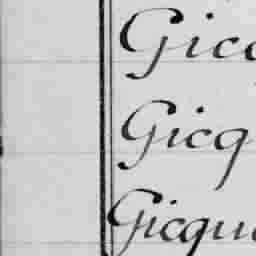 Gicq
Gicq
Gicqu